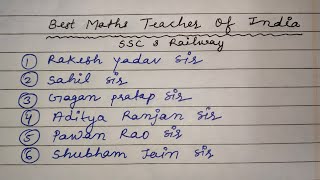 Best Maths Teacher Of India
SSC & Railway
1 Rakesh yadav Sir
2 Sahil Sir
3 Gagan pratap Sir
4 Aditya Ranjan Sir
5 Pawan Rao Sir
6 Shubham Jain Sir